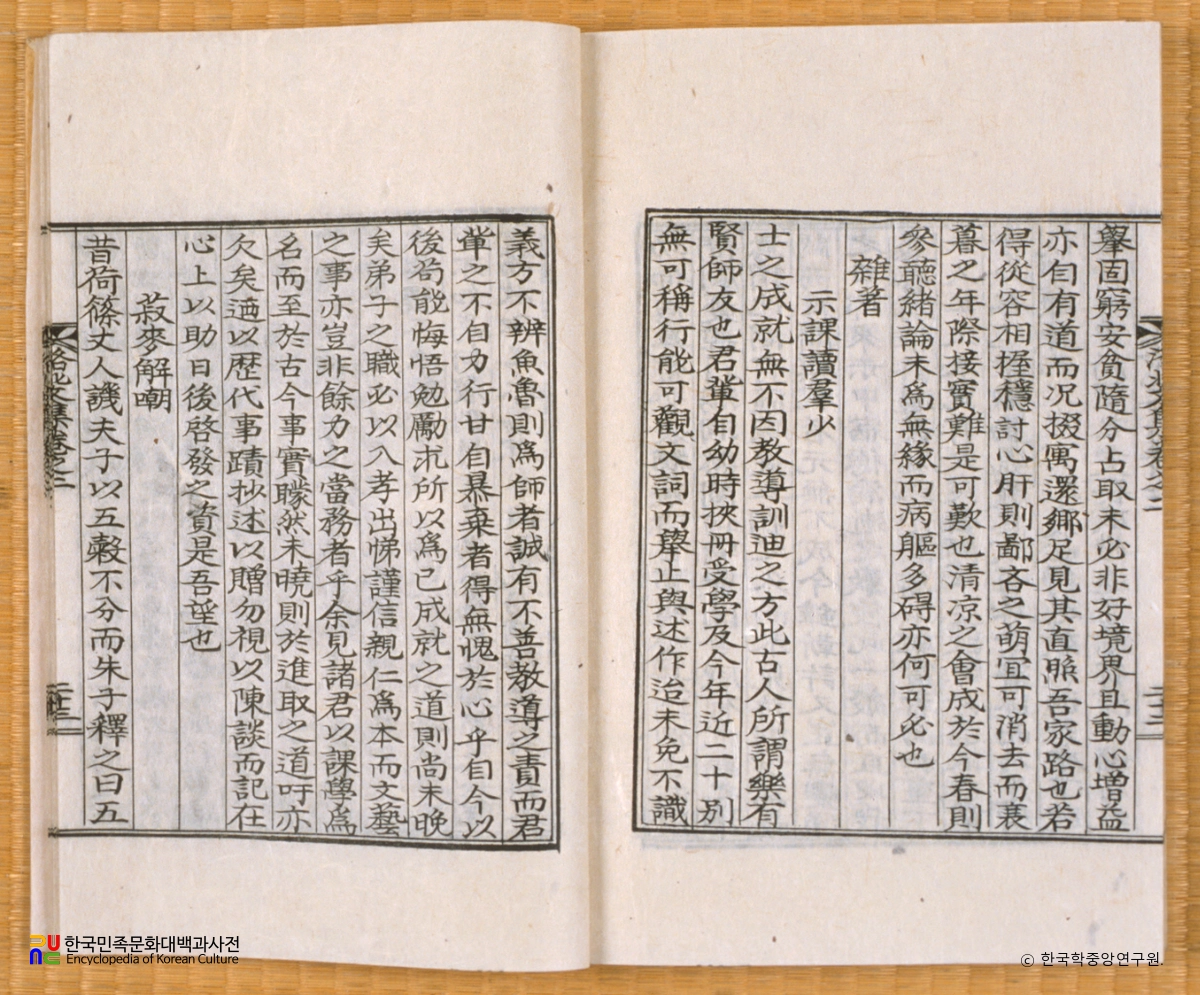 擧固窮安貧隨分占取未必非好境界且動心增益
亦自有道而况掇寓還鄉足見其直照吾家路也若
得從容相握穩討心肝則鄙吝之萌宜可消去而衰
暮之年際接實難是可歎也清凉之會成於今春則
參聽緖論未爲無緣而病軀多碍亦何可必也
雜著
示課讀羣少
士之成就無不因教導訓迪之方此古人所謂樂有
賢師友也君輩自幼時挾冊受學及今年近二十別
無可稱行能可觀文詞而擧止與述作迨未免不識
義方不辨魚魯則爲師者誠有不善教導之責而君
輩之不自力行甘自暴棄者得無愧於心乎自今以
後苟能悔悟勉勵求所以爲己成就之道則尚未晚
矣弟子之職必以入孝出悌謹信親仁爲本而文藝
之事亦豈非餘力之當務者乎余見諸君以課學爲
名而至於古今事實矇然未曉則於進取之道吁亦
欠矣迺以歷代事蹟抄述以贈勿視以陳談而記在
心上以助日後啓發之資是吾望也
菽麥解嘲
昔荷篠丈人譏夫子以五穀不分而朱子釋之曰五
文集卷之二
한국민족문화대백과사전
Encyclopedia of Korean Culture
ⓒ 한국학중앙연구원.